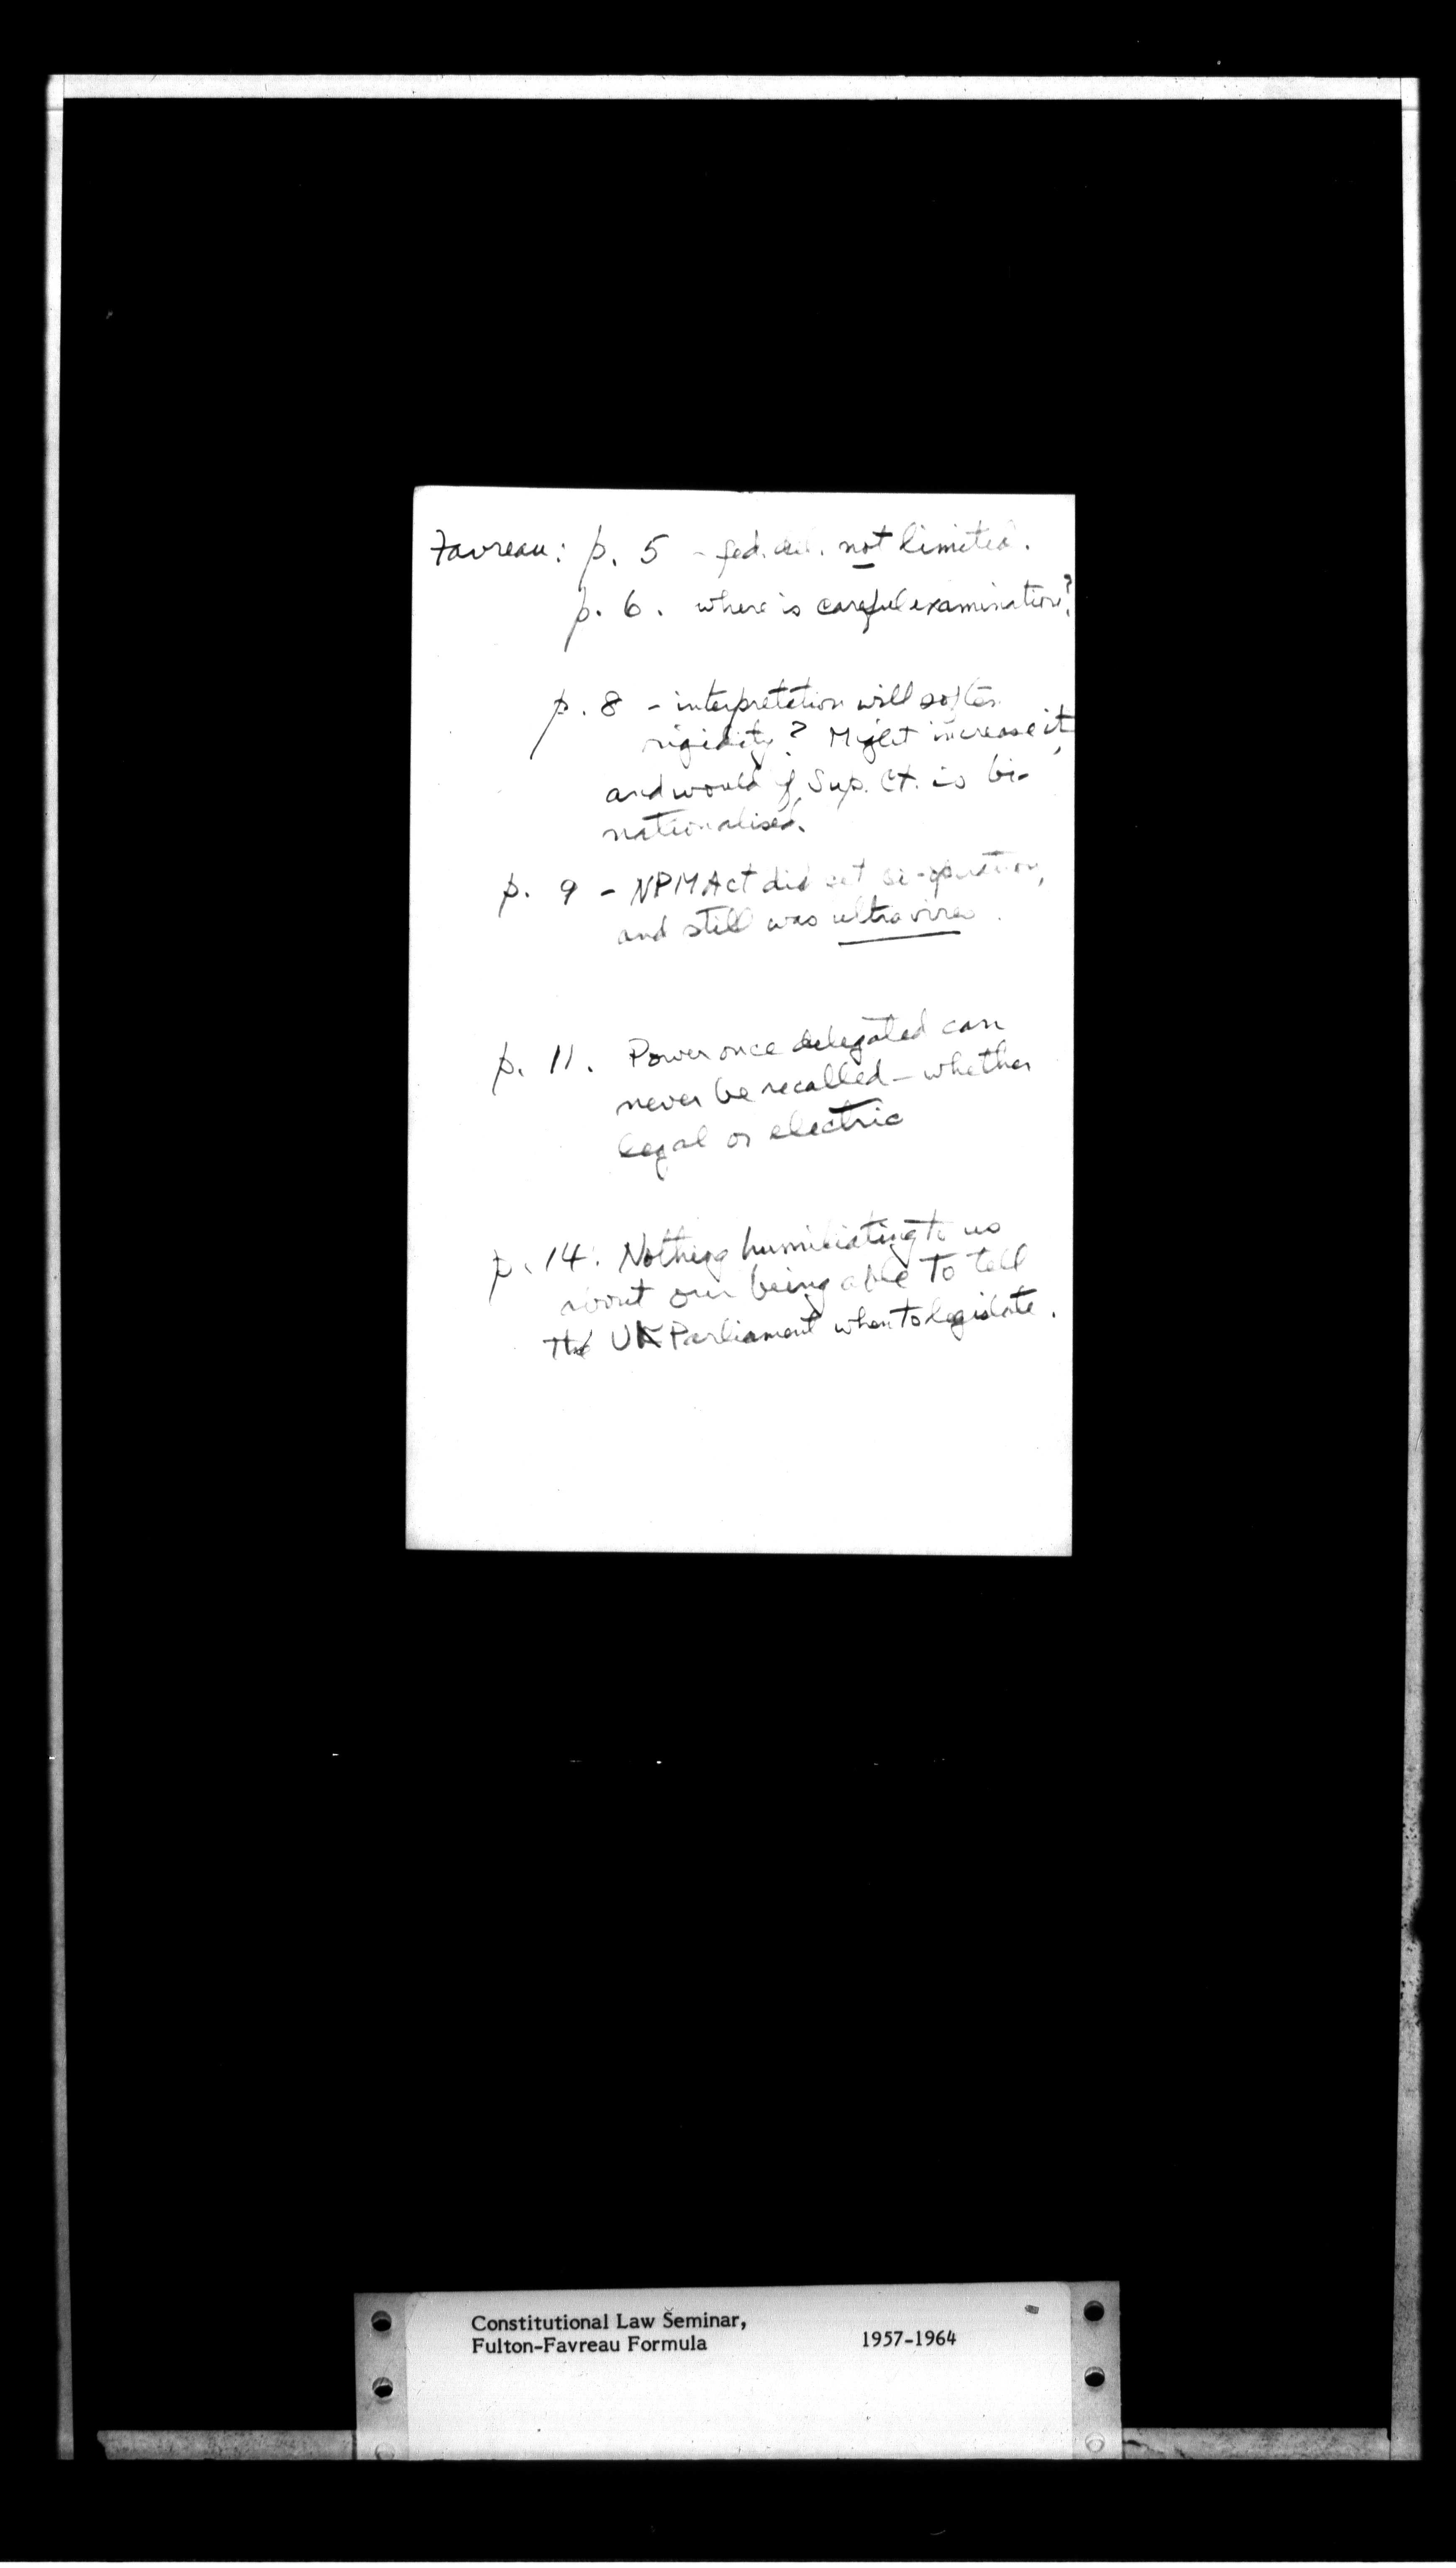 Favreau: p. 5 - fed. del. not limited.
p. 6. where is careful examination?
p. 8 - interpretation will soften
rigidity? Might increase it,
and would if Sup. Ct. is bi-
nationalised.
p. 9 - NPM Act did get co-operation,
and still was ultra vires.
p. 11. Power once delegated can
never be recalled - whether
legal or electric
p. 14. Nothing humiliating to us
about our being able to tell
the UK Parliament when to legislate.
Constitutional Law Seminar,
Fulton-Favreau Formula 1957-1964